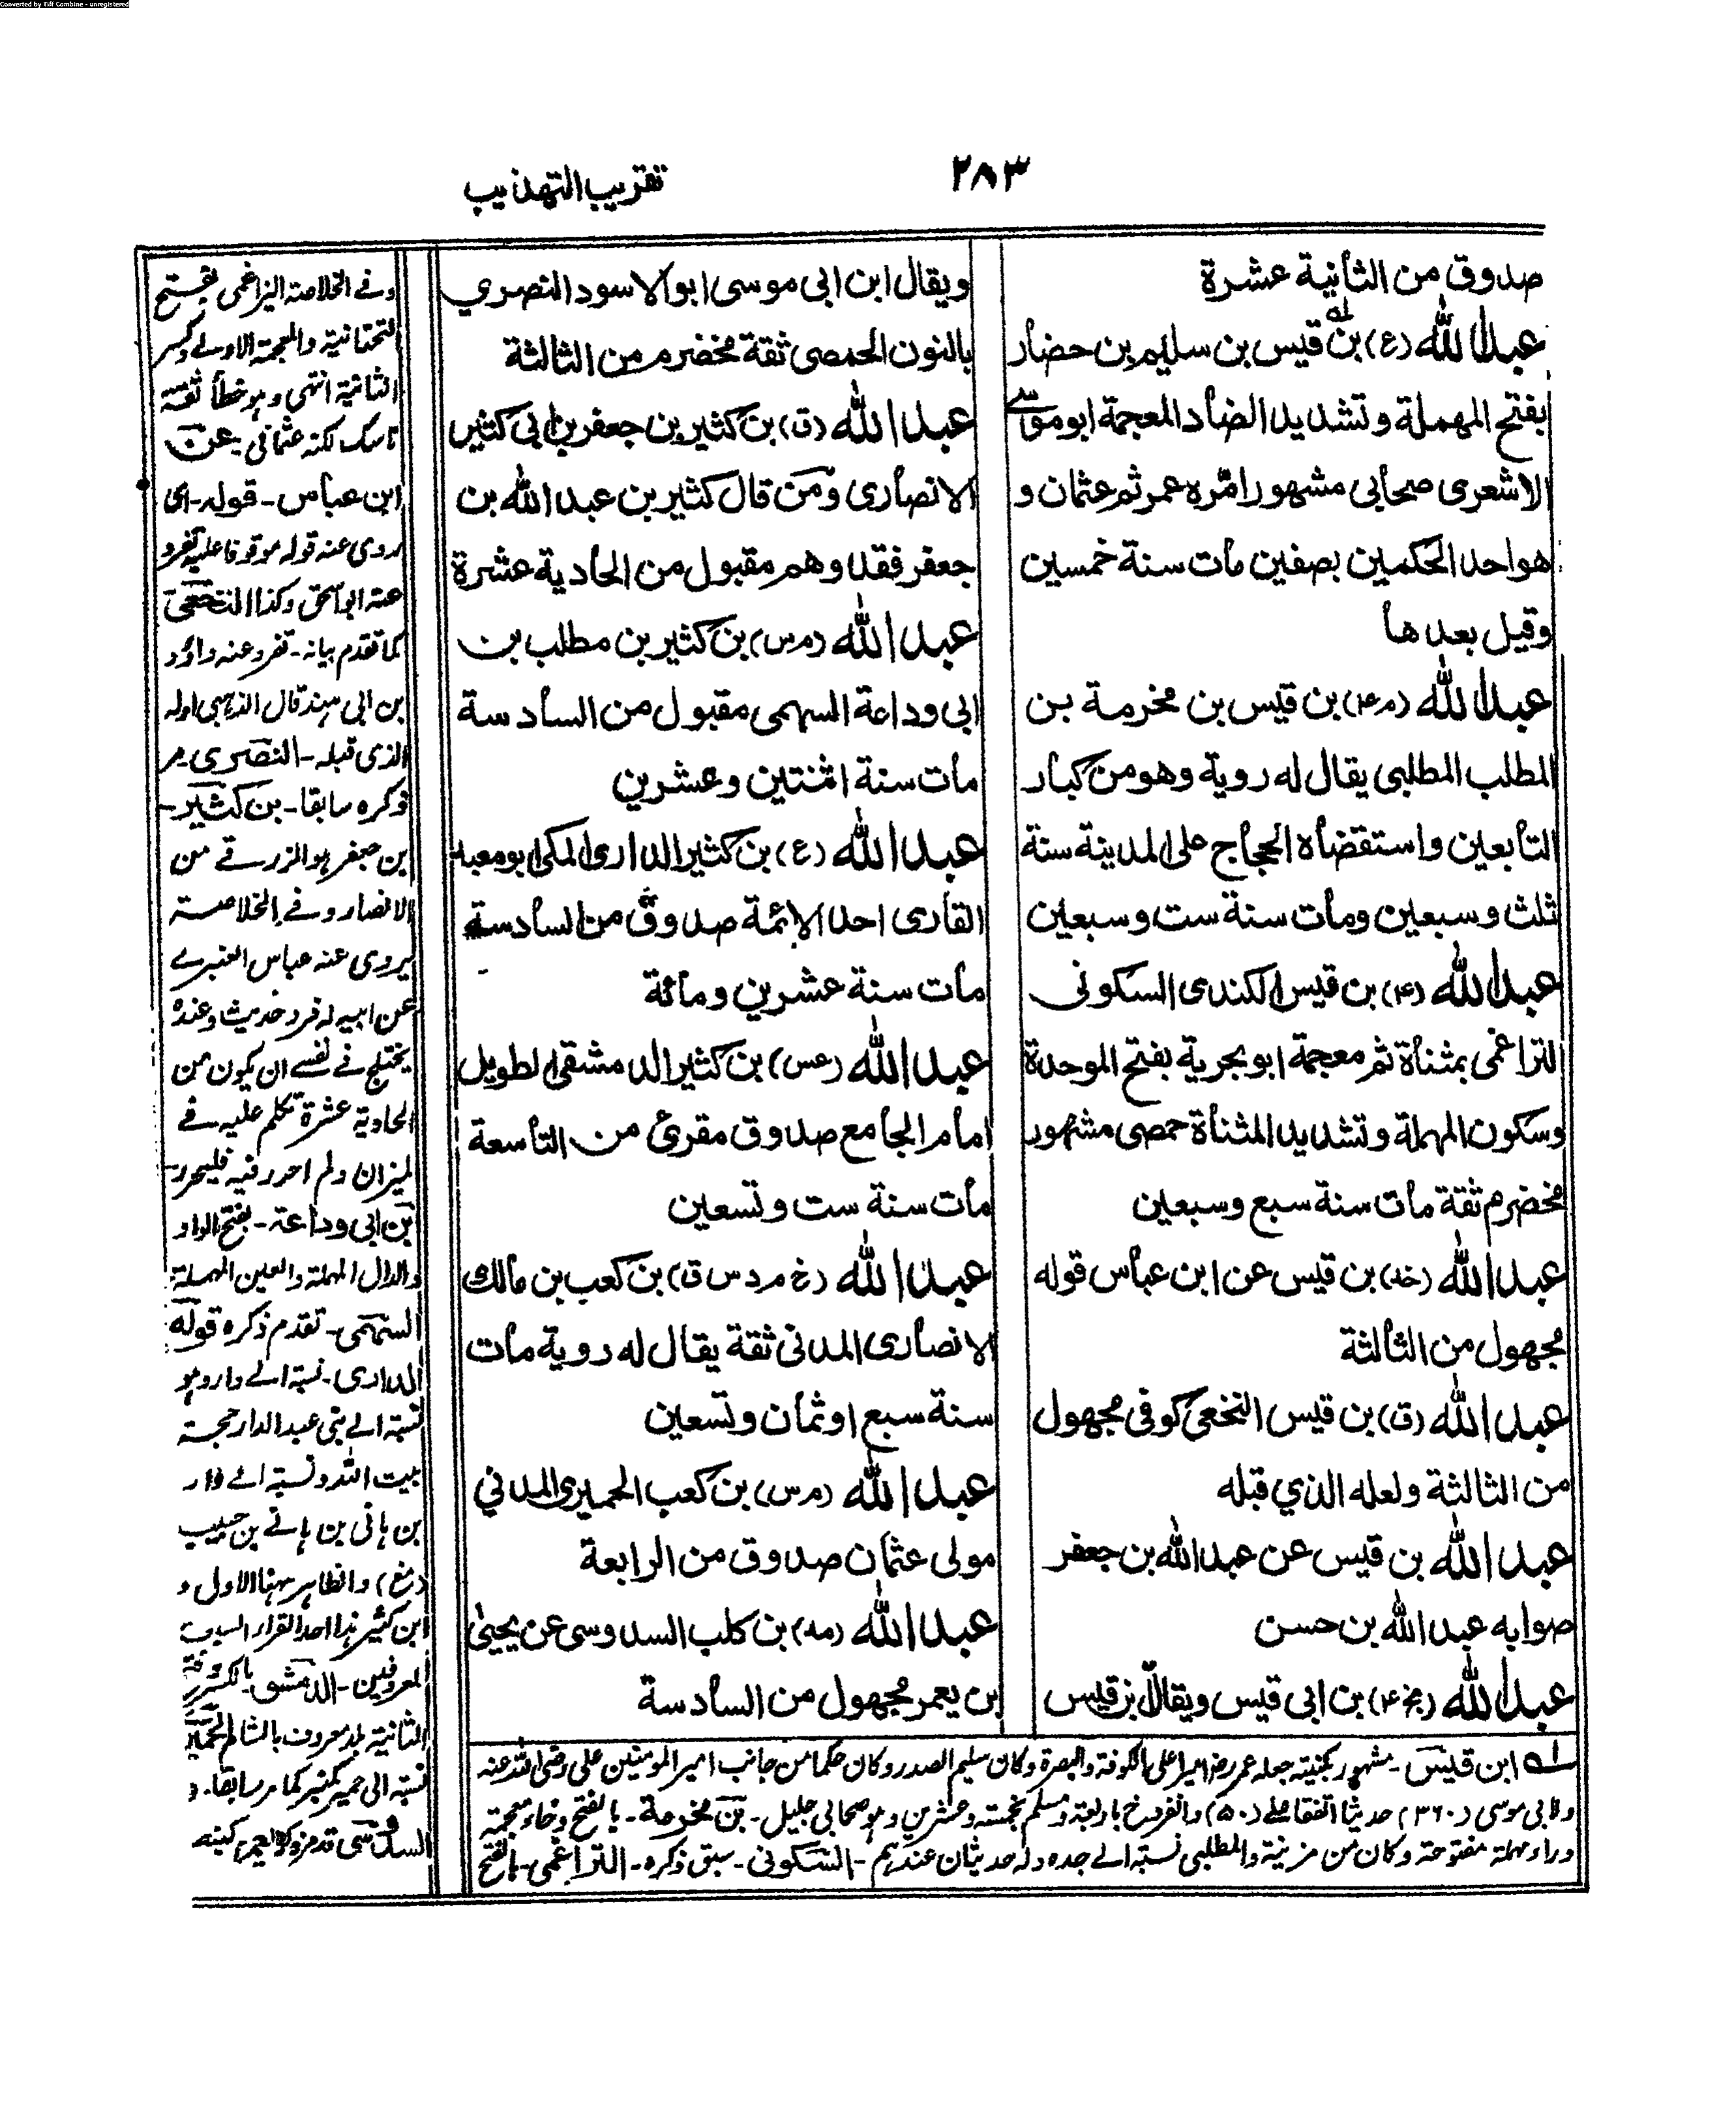 Converted by Tiff Combine - unregistered
٢٨٣
تقريب التهذيب
صدوق من الثانية عشرة
عبد الله (ع) بن قيس بن سليم بن حضار
بفتح المهملة وتشديد الضاد المعجمة ابو موسى
الاشعرى صحابى مشهور امّره عمر ثم عثمان و
هو احد الحكمين بصفين مات سنة خمسين
وقيل بعدها
عبد الله (م ٤) بن قيس بن مخرمة بن
المطلب المطلبى يقال له روية وهو من كبار
التابعين واستقضاه الحجاج على المدينة سنة
ثلث وسبعين ومات سنة ست وسبعين
عبد الله (٤) بن قيس الكندى السكونى
التراغمى بمثناة ثم معجمة ابو بحرية بفتح الموحدة
وسكون المهملة وتشديد المثناة حمصى مشهور
مخضرم ثقة مات سنة سبع وسبعين
عبد الله (خد) بن قيس عن ابن عباس قوله
مجهول من الثالثة
عبد الله (ق) بن قيس النخعى كوفى مجهول
من الثالثة ولعله الذي قبله
عبد الله بن قيس عن عبد الله بن جعفر
صوابه عبد الله بن حسن
عبد الله (بخ ٤) بن ابى قيس ويقال بن قيس
ويقال ابن ابى موسى ابو الاسود النصري
بالنون الحمصى ثقة مخضرم من الثالثة
عبد الله (ق) بن كثير بن جعفر بن ابى كثير
الانصارى ومن قال كثير بن عبد الله بن
جعفر فقد وهم مقبول من الحادية عشرة
عبد الله (م س) بن كثير بن مطلب بن
ابى وداعة السهمى مقبول من السادسة
مات سنة اثنتين وعشرين
عبد الله (ع) بن كثير الدارى المكى ابو معبد
القارى احد الائمة صدوق من السادسة
مات سنة عشرين ومائة
عبد الله (عس) بن كثير الدمشقى الطويل
امام الجامع صدوق مقرئ من التاسعة
مات سنة ست وتسعين
عبد الله (خ م د س ق) بن كعب بن مالك
الانصارى المدنى ثقة يقال له روية مات
سنة سبع او ثمان وتسعين
عبد الله (م س) بن كعب الحميرى المدني
مولى عثمان صدوق من الرابعة
عبد الله (مد) بن كلب السدوسى عن يحيىٰ
ابن يعمر مجهول من السادسة
وفى الخلاصة اليزاغمى بفتح
التحتانية والمعجمة الاولى وكسر
الثانية انتهى وهو خطأ ثقة
ناسك لكنه عثمانى - عن
ابن عباس - قوله - اى
روى عنه قوله موقوفا عليه تفرد
عنه ابو اسحق وكذا النخعى
كما تقدم بيانه - تفرد عنه داؤد
بن ابى هند قال الذهبى اوله
الذى قبله - النصرى - مر
ذكره سابقا - بن كثير -
بن جعفر هو الزرقى من
الانصار وفى الخلاصة
يروى عنه عباس العنبرى
عن ابيه له فرد حديث وعنده
يختلج فى نفسى ان يكون من
الحادية عشرة تكلم عليه فى
الميزان ولم احرر فيه فليحرر -
بن ابى وداعة - بفتح الواو
والدال المهملة والعين المهملة
السهمى - تقدم ذكره قوله
الدارى - نسبة الى دار وهو
نسبة الى بنى عبد الدار حجبة
بيت الله ونسبة الى دار
بن هانى بن هانى بن حبيب
(مغ) والظاهر ههنا الاول و
ابن كثير هذا احد القراء السبعة
المعروفين - الدمشقى - بالكسر وفتح
الثانية بلد معروف بالشام الحميرى
نسبة الى حمير كمنبر كما مر سابقا - و
السدوسى قد مر ذكره
له ابن قيس - مشهور بكنيته جعله عمر رض اميرا على الكوفة والبصرة وكان سليم الصدر وكان حكما من جانب امير المومنين على رضى الله عنه
ولابى موسى (٣٦٠) حديثا اتفقا على (٥٠) وانفرد خ باربعة ومسلم بخمسة وعشرين وهو صحابى جليل - بن مخرمة - بالفتح وخاء معجمة
وراء مهملة مفتوحة وكان من مزينة والمطلبى نسبة الى جده وله حديثان عندهم - السكونى - سبق ذكره - التراغمى - بالفتح